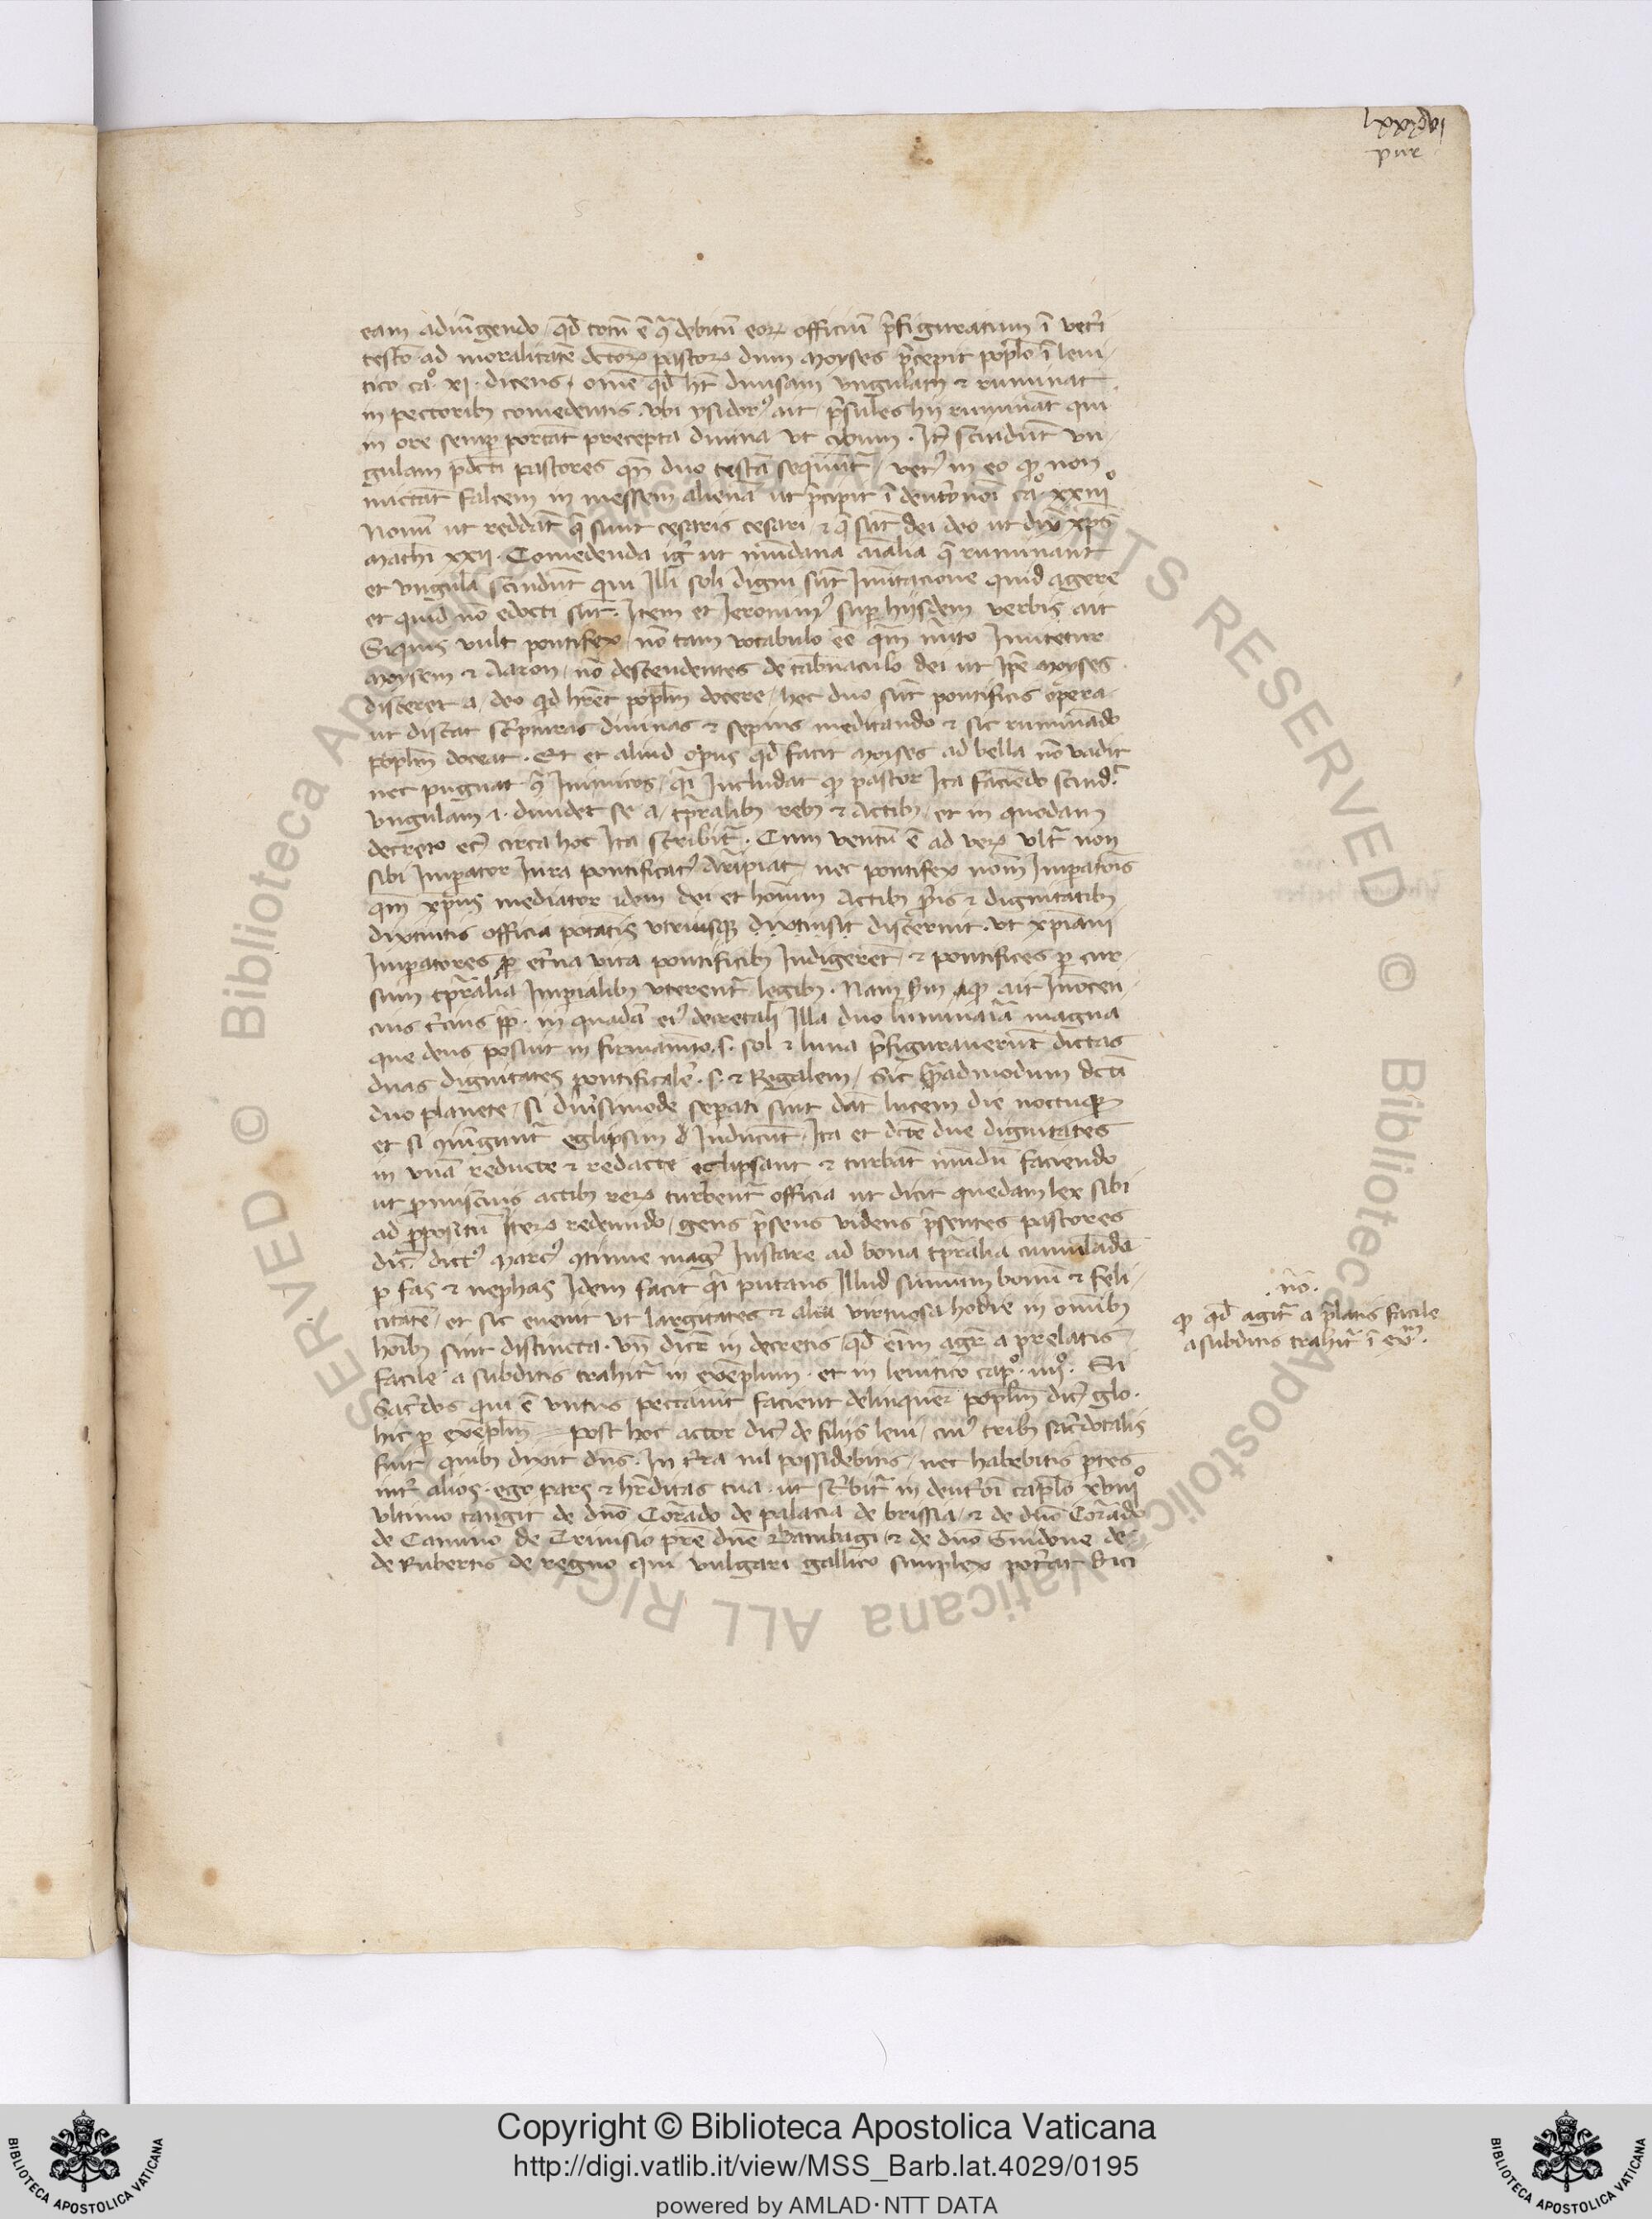 lxxxvi
pur
eam adiu̅gendo, qd̅ totu̅ e̅ q̅ debitu̅ eoꝝ officiu̅ p̅figuratum i̅ vet̅i
testo̅ ad moralitate̅ dc̅toꝝ pastoꝝ dum Moyses p̅cepit pop̅lo i̅ levi-
tico ca̅o xi. dicens, om̅e qd̅ ht̅ divisam ungula̅m & ruminat
in pectorib; comedentis. ubi ysidor9 ait p̅sules hij ruminat̅ qui
in ore semp̲ portat̅ precepta divina ut cibum. It̅ scindu̅t un-
gulam p̅dc̅ti pastores qn̅ duo testa̅ sequu̅t̅, vet9 in eo ꝙ non
mictat̅ falcem in messem aliena̅ ut p̅cipit̅ i̅ deut̅onoi̅ ca̅o xxiijo
Novu̅ ut reddat̅ q̅ sunt cesaris cesari, & q̅ su̅t dei deo ut dix̅ xp̅s
Mathi̅ xxij. Comedenda ig̅ ut mu̅dana ai̅alia q̅ ruminant
et ungula̅ scindu̅t qui illi̅ soli digni su̅t Imitacione quid agere
et quid no̅ edocti su̅t. Item et Ieronim9 sup̲ hijsdem verbis ait
Siquis vult pontifex, no̅ tam vocabulo ee̅ qm̅ m̅ito Imitetur
Moysem & Aaron, no̅ descendentes de tab̅naculo dei ut Ip̅e Moyses
disceret a, deo qd̅ hr̅et pop̅lm docere, hec duo su̅t pontificis opera,
ut discat sc̅pturas divinas & sepius meditando & sic ruminado̅
pop̅lm doceat. Et et aliud opus qd̅ facit Moises ad bella no̅ vadit
nec pugnat 9̅ Inimicos, qi̅ Includat ꝙ pastor Ita facie̅do scind̅
ungulam .i. dividet se a, tp̅ralib; reb; & Actib;, et in quodam
decreto et9 circa hoc Ita scribit̅. Cum ventu̅ e̅ ad veꝝ ult̅ non
sibi Imp̲ator Iura pontificat9 Aripiat, nec pontifex nom̅ Imp̲atoris̅
qm̅ xp̅us mediator idem dei et hom̅um Actib; p̅is & dignitatib;
distinctis officia potatis̅ utriusq; distinsit discrevit. ut xp̅iani
Imp̲atores ꝓ et̅na vita pontificib; Indigeret̅, & pontifices p̲ cur-
sum tp̅ralia̅ Imp̲ialib; uterent̅ legib;. Nam sm̅ qp̅ ait Inocen̅-
cius t̅cius pp̅. in quada̅ ei9 decretali Illa duo luminaia̅ magna
que deus posuit in firmame̅to .s. sol & luna p̅figuraverut̅ dictas
duas dignitates pontificale̅ .s. & Regalem, Sic q̅madmodum dc̅ti
duo planete, si div̅simode sep̲ati sint dat̅ lucem die noctuq;
et si 9iungunt̅ eglipsim Inducu̅t, Ita et dc̅te due dignitates
in una̅ reducte & redacte eclipsant & turbat̅ mu̅du̅ faciendo
ut p̲miscuis actib; reꝝ turbent̅ officia ut dicit quedam lex sibi
ad ꝓpositu̅ It̅eꝝ redeundo, gens p̅sens videns p̅sentes pastores
dic̅ dict9 Marc9 9tinue mag9 Instare ad bona tp̅ralia cumulanda
p̲ fas & nephas Idem facit qi̅ putans Illud sum̅um bonu̅ & feli-
citate̅, et sic evenit ut largitates & alia virtuosa hodie in omi̅b;
hoi̅b; sint distincta. un̅ dicit̅ in decretis, qd̅ eni̅m agit̅ a prelatis
facile a subditis trahit̅ in exe̅plum. et in levitico cap̅o. iiijo. Si
Sac̅dos qui e̅ untus peccaverit facient delinque̅ pop̅lm dic9 glo.
hic p̲ exe̅plm̅ = post hoc actor dic9 de filijs levi, cui9 trib; sac̅dotalis
fuit, quib; dixit dn̅s. In t̅ra nil possidebitis, nec habebitis p̲tes
int̅ alios. ego pars & hr̅ditas tua. ut sc̅bit̅ in deut̅oi̅ cap̅lo xviijo
Ultimo tangit de dn̅o Corado̅ de palacia de brissia, & de dn̅o Corado̅
de Camino de Trivisio pre̅ dn̅e Bambagi & de dn̅o Guidone de-
de Rubertis de regno qui vulgari gallico simplex pot̅at dici
.no̅.
ꝙ qd̅ agit̅ a p̅latis facile
a subditis trahit̅ i̅ ex̅m.
Copyright © Biblioteca Apostolica Vaticana
http://digi.vatlib.it/view/MSS_Barb.lat.4029/0195
powered by AMLAD·NTT DATA
BIBLIOTECA APOSTOLICA VATICANA
BIBLIOTECA APOSTOLICA VATICANA
© Biblioteca Apostolica Vaticana ALL RIGHTS RESERVED